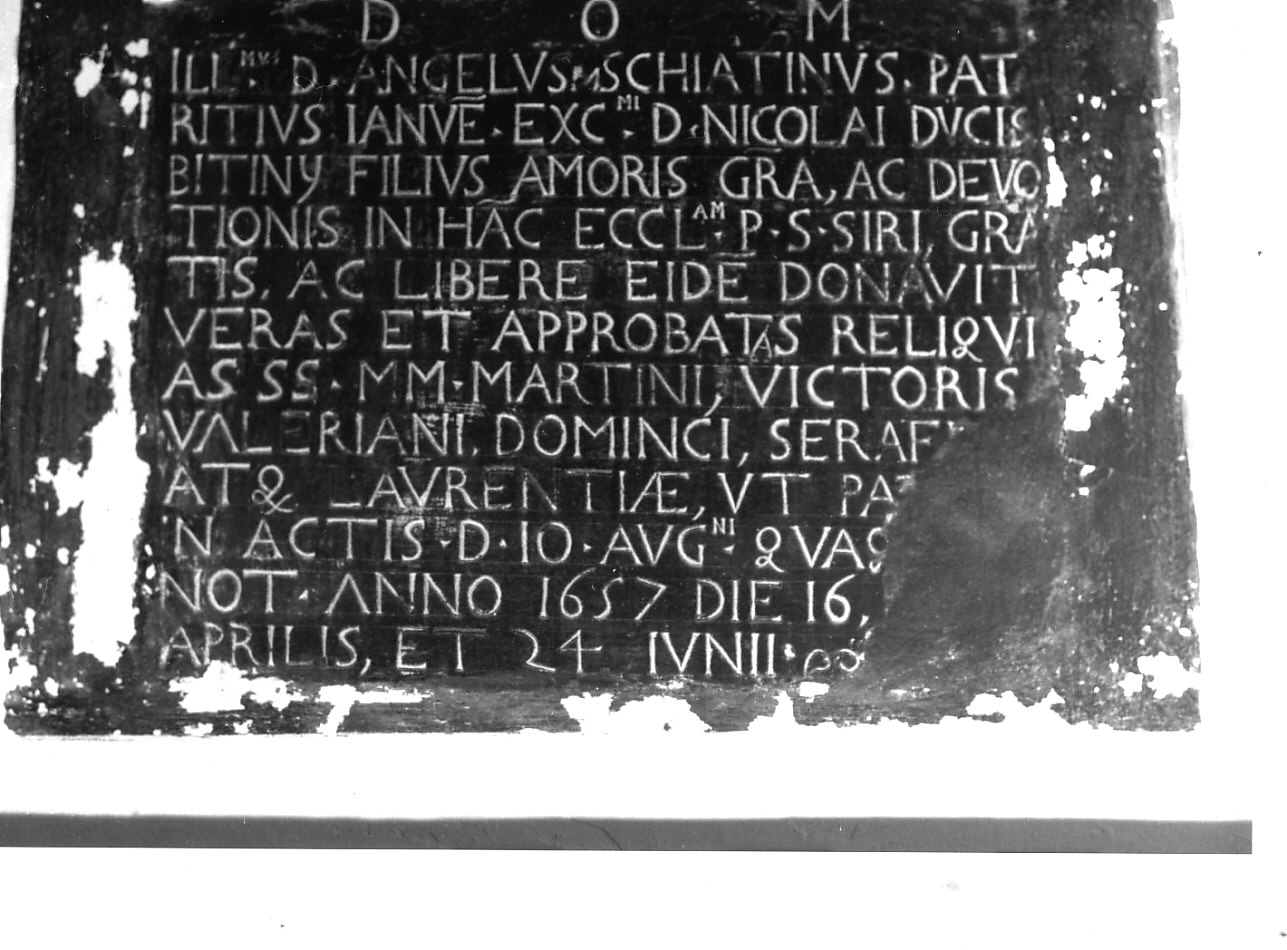 D O M
ILL.MVS D. ANGELVS SCHIATINVS. PAT
RITIVS IANVĒ. EXC.MI D. NICOLAI DVCIS
BITINY FILIVS AMORIS GRA, AC DEVO
TIONIS IN HAC ECCL.AM P. S. SIRI, GRA
TIS, AC LIBERE EIDE DONAVIT
VERAS ET APPROBATAS RELIQVI
AS SS. MM. MARTINI, VICTORIS
VALERIANI, DOMINCI,
AT& LAVRENTIÆ, VT
IN ACTIS. D. IO. AVG.NI
NOT. ANNO 1657 DIE 16,
APRILIS, ET 24 IVNII.